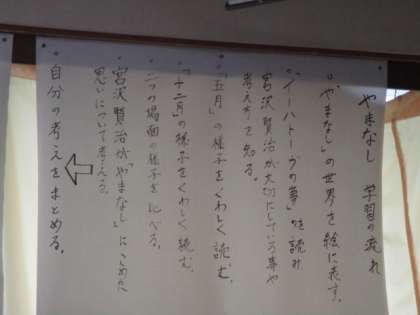 やまなし 学習の流れ
・「やまなし」の世界を絵に表す。
・「イーハトーヴの夢」を読み
宮沢賢治が大切にしている事や
考え方を知る。
・「五月」の様子をくわしく読む。
・「十二月」の様子をくわしく読む。
・二つの場面の様子を比べる。
・宮沢賢治が「やまなし」にこめた
思いについて考える。
・自分の考えをまとめる。